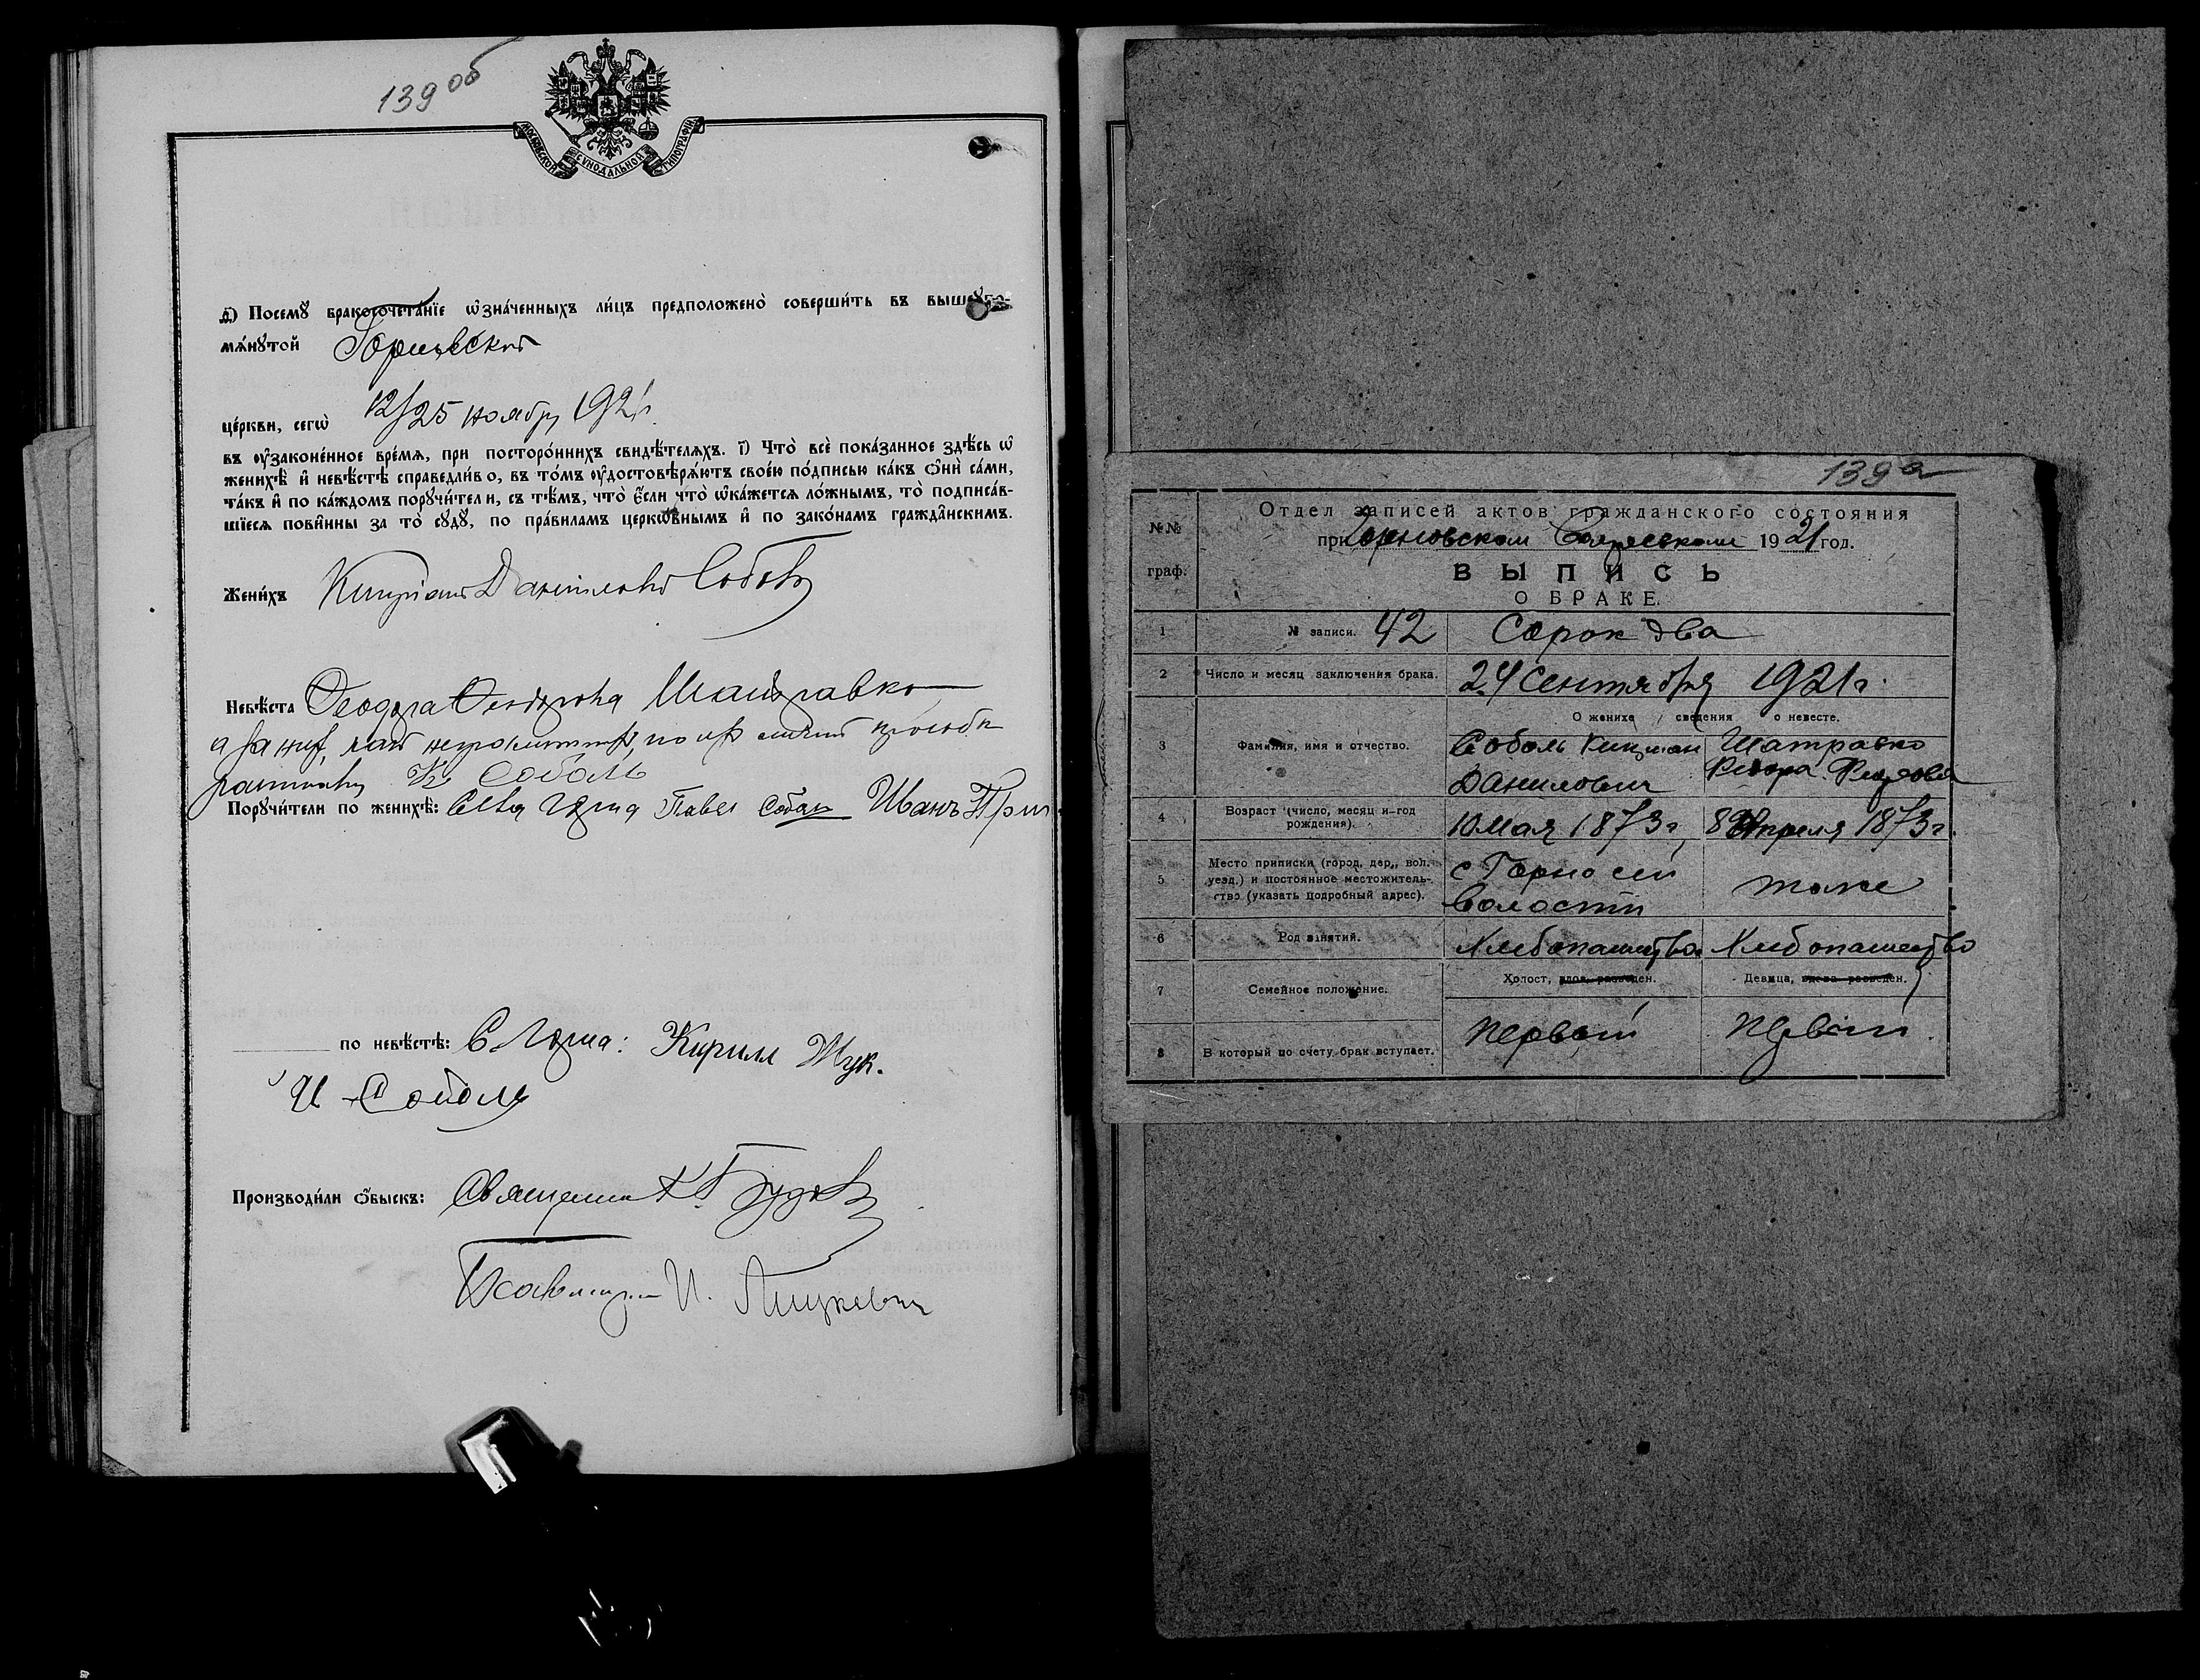 139 об
МОСКОВСКОЙ СѴНОДАЛЬНОЙ ТИПОГРАФІИ
д҃) Посемꙋ̀ бракосочета́нїе ѡ҆зна́ченныхъ ли́цъ предположено̀ соверши́ть въ вышеꙋпо-
мѧ́нꙋтой Горновской
це́ркви, сегѡ̀ 12/25 ноября 1921 г.
въ ᲂу҆законе́нное вре́мѧ, при посторо́ннихъ свидѣ́телѧхъ. і҃) Что̀ всѐ пока́занное здѣ́сь ѡ҆
женихѣ̀ и҆ невѣ́стѣ справедли́во, въ то́мъ ᲂу҆достовѣрѧ́ютъ свое́ю по́дписью ка́къ ѻ҆нѝ са́ми,
та́къ и҆ по ка́ждомъ порꙋчи́тели, съ тѣ́мъ, что̀ є҆́сли что̀ ѡ҆ка́жетсѧ ло́жнымъ, то̀ подписа́в-
шїесѧ пови́нны за то̀ сꙋдꙋ̀, по пра́виламъ церко́внымъ и҆ по зако́намъ гражда́нскимъ.
Жени́хъ Кипріанъ Даніиловъ Соболь
Невѣ́ста Ѳеодора Ѳеодорова Шатравко
а за них, как неграмотных, по их личной просьбе
Соболь
Порꙋчи́тели по женихѣ̀: Павел Иванъ
по невѣ́стѣ: Кирилл Жук.
И Соболь
Производи́ли ѻ҆́быскъ: Священник К.
Псаломщик И.
139 а
№№ граф.
Отдел записей актов гражданского состояния
при Горновском 1921 год.
ВЫПИСЬ
О БРАКЕ.
1 № записи. 42 Сорок два
2 Число и месяц заключения брака. 24 Сентября 1921 г.
О женихе сведения о невесте.
3 Фамилия, имя и отчество. Соболь Киприан Шатравко
Данилович Федора
4 Возраст (число, месяц и год рождения). 10 Мая 1873 г, 8 Апреля 1873 г.
5 Место приписки (город, дер., вол. уезд.) и постоянное местожительство (указать подробный адрес). с Горно сей тоже
волости
6 Род занятий. Хлебопашество Хлебопашество
7 Семейное положение. Холост, вдов, разведен. Девица, вдова разведен.
8 В который по счету брак вступает. Первый Первый